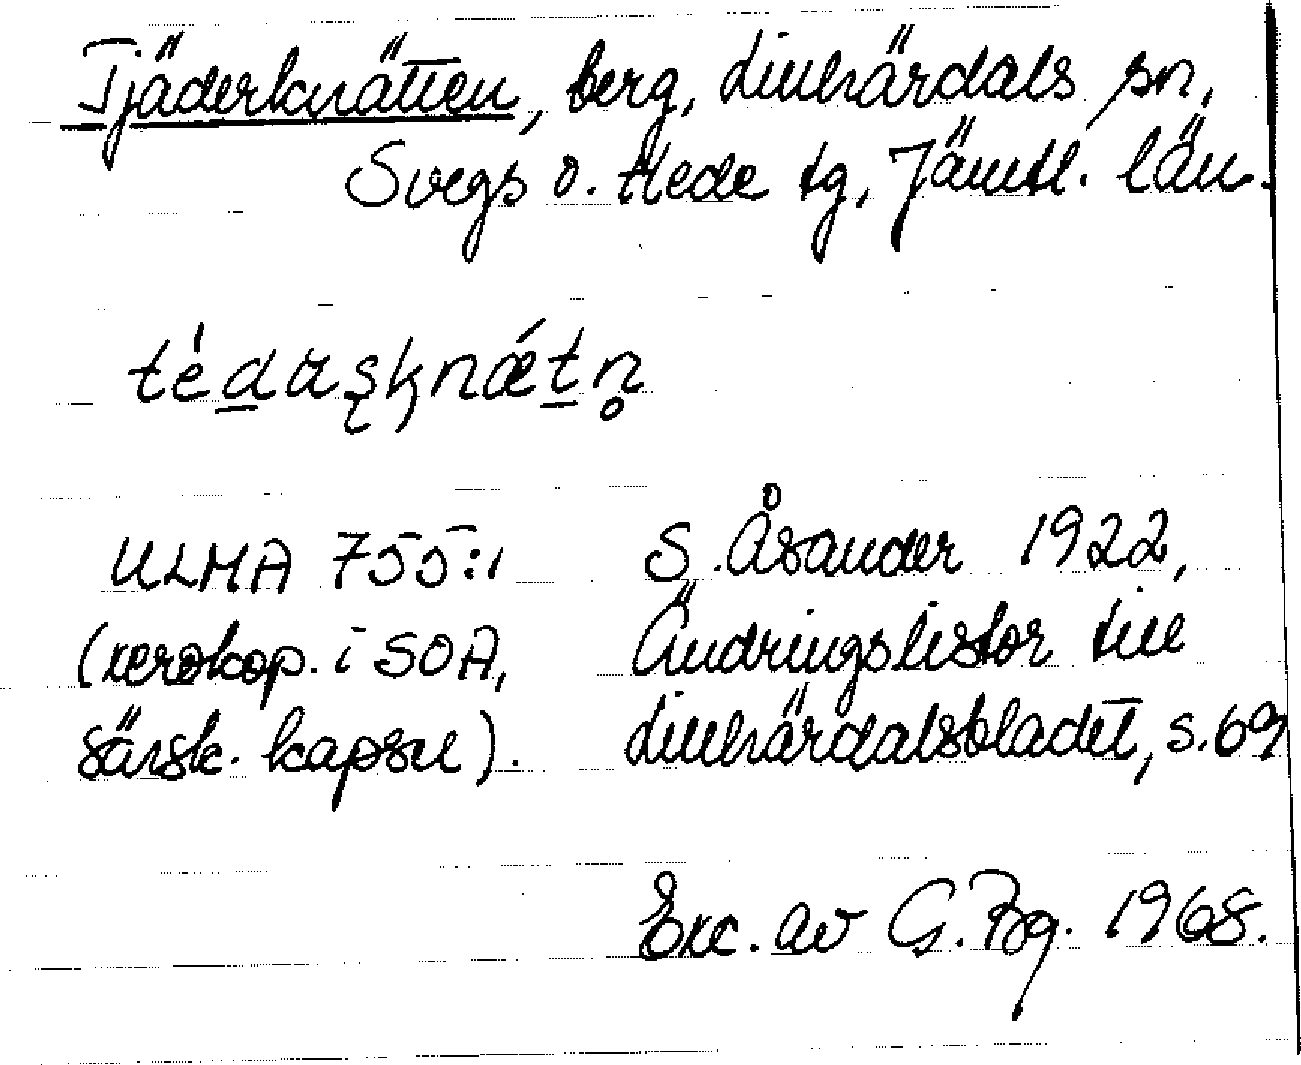 Tjäderknätten, berg, Lillhärdals sn,
Svegs o. Hede tg, Jämtl. län.
ULMA 755:1
(xerokop. i SOA,
särsk. kapsel).
S. Åsander 1922,
Ändringslistor till
Lillhärdalsbladet, s. 69
Exc. av G. Bg. 1968.